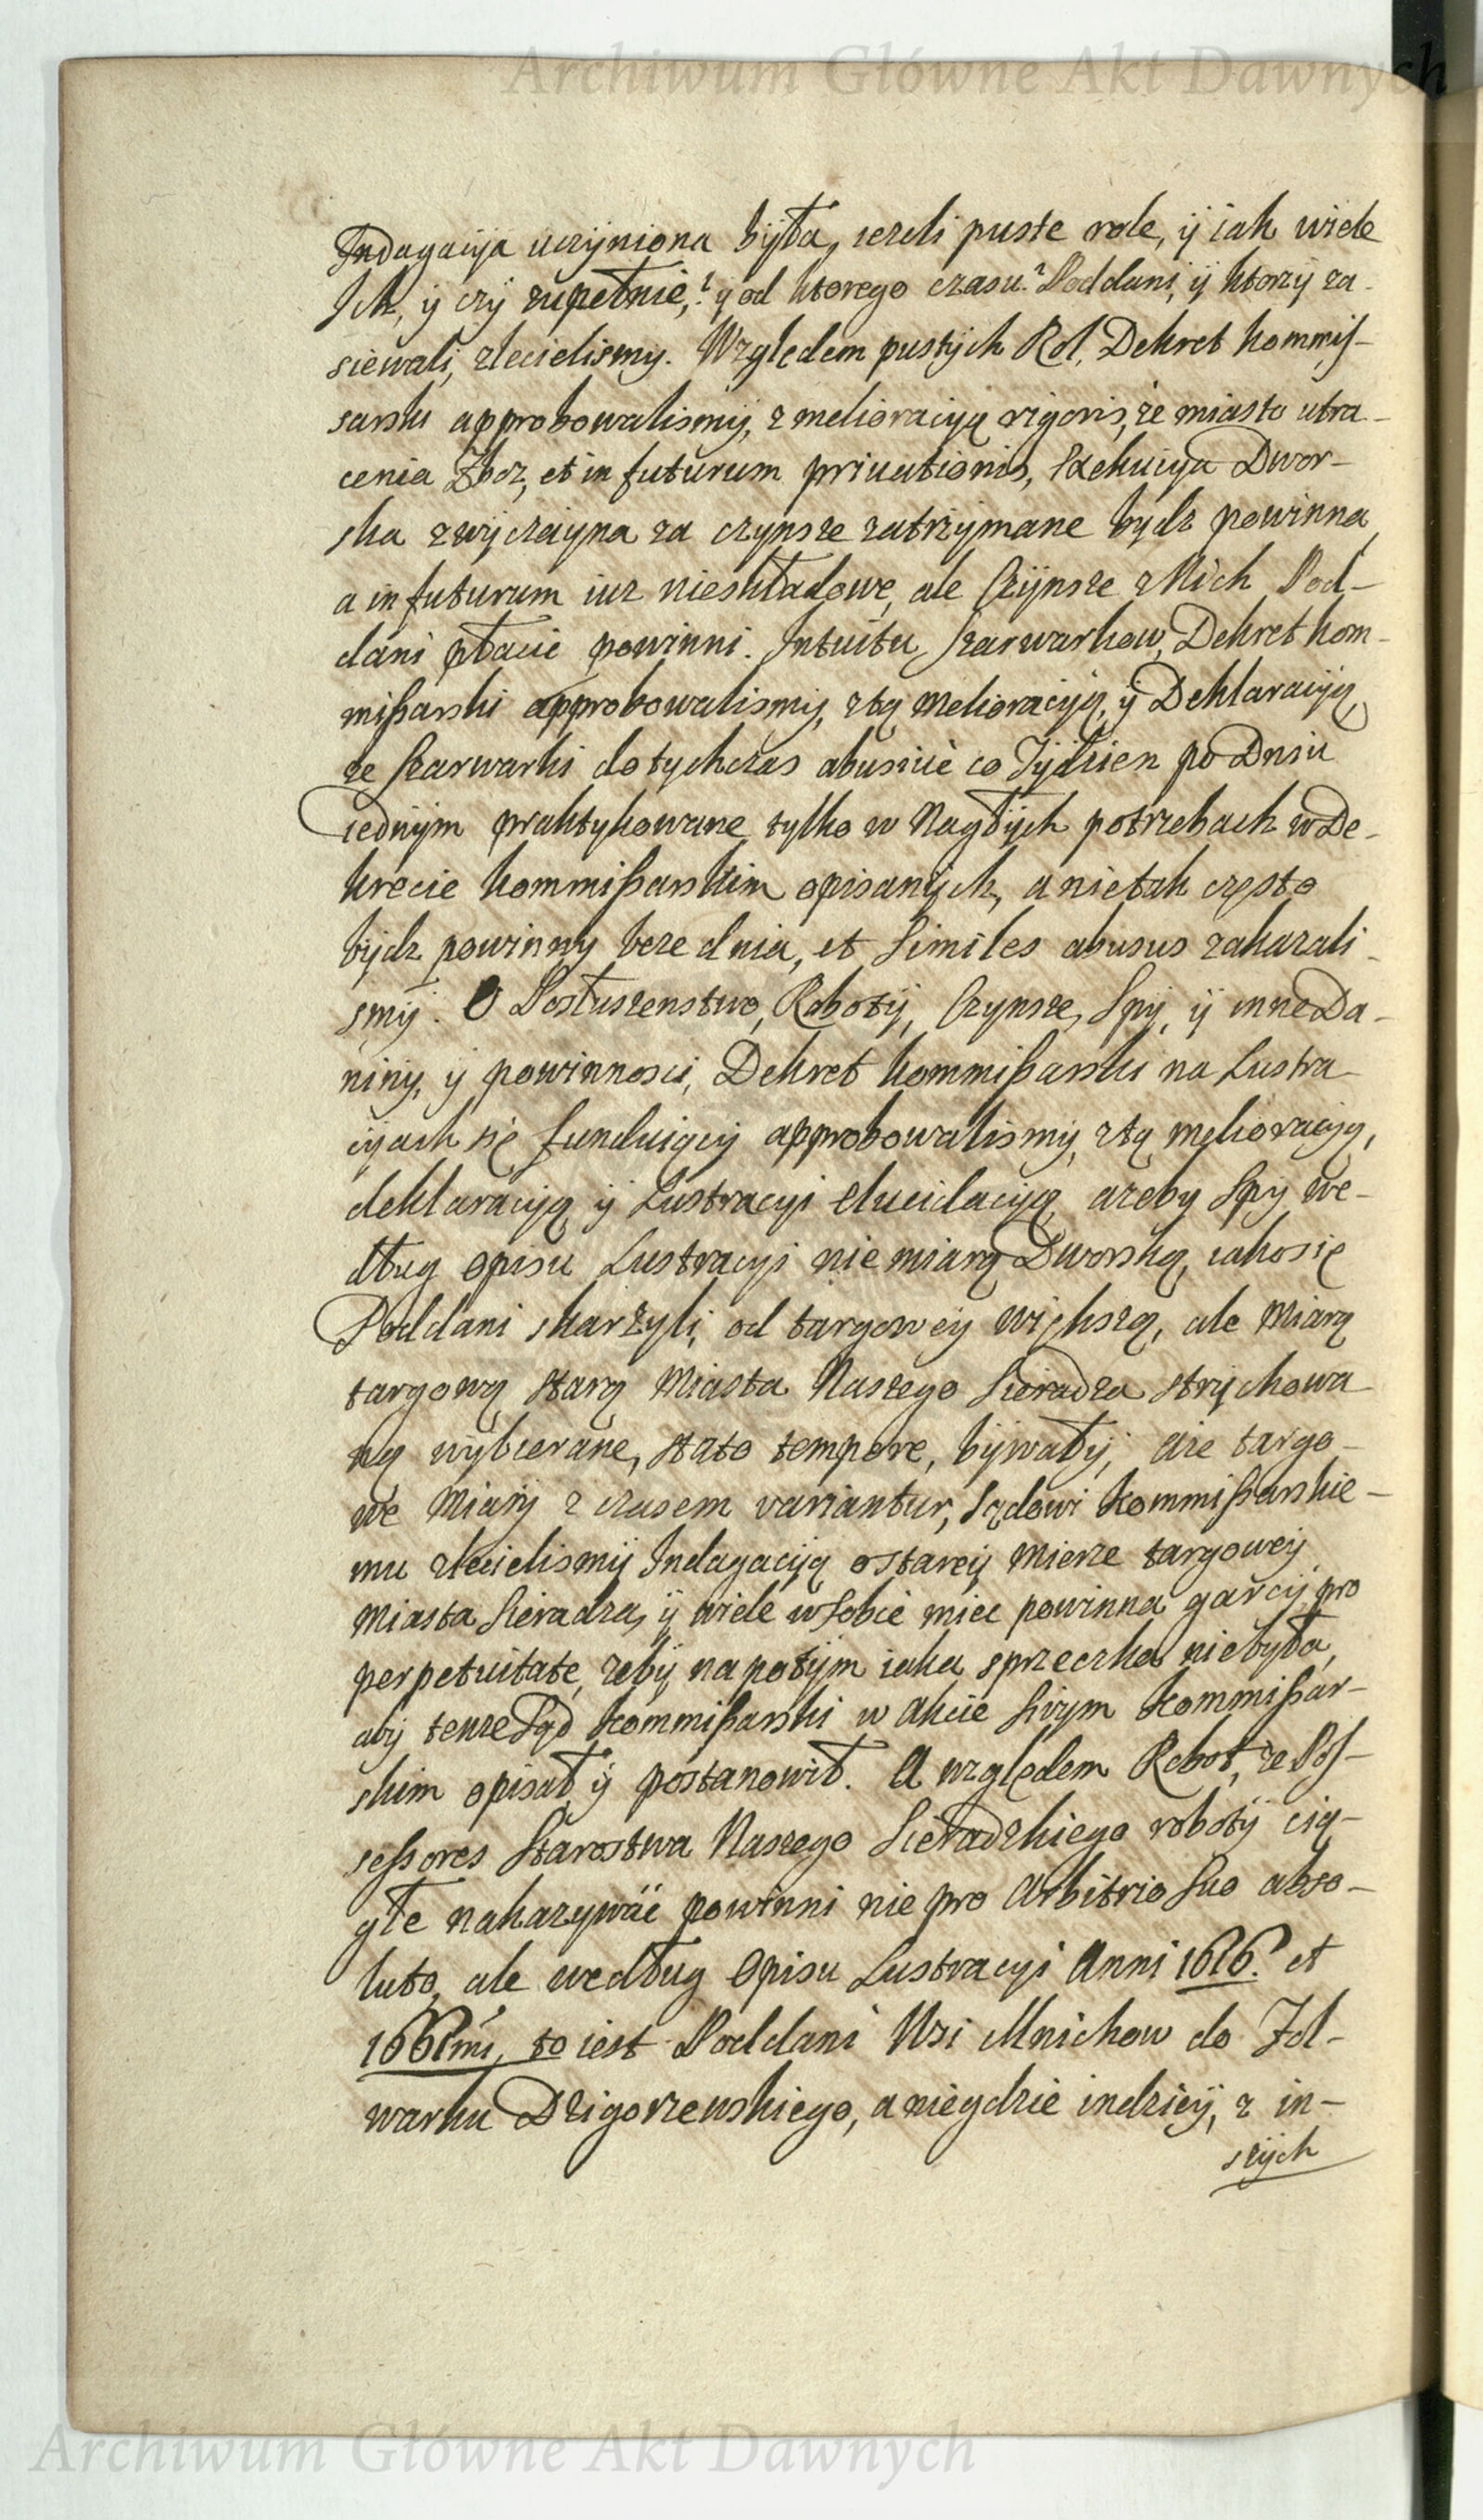 Archiwum Główne Akt Dawnych
Indagacyja uczyniona była, iezeli puste role, ÿ iak wiele
Ich, ÿ czÿ zupełnie,? ÿ od ktorego czasu? Poddani, ÿ ktorzÿ za-
siewali, zlecielismy. Względem pustÿch Rol, Dekret kommis-
sarski approbowalismÿ, z melioracyą rigoris, że miasto utra-
cenia Zboz, et in futurum privationis, Exekucyia Dwor-
ska zwÿczaÿna za czynsze zatrzÿmane bydz powinna,
a in futurum iuz nieskładowe, ale Czÿnsze z Nich Pod-
dani płacić powinni. Intuitu Szarwarkow, Dekret kom-
mißarski approbowalismÿ, z tą Melioracÿą, ÿ Deklaracÿą,
ze Szarwarki dotychczas abusivè co Tÿdzien po Dniu
iednÿm praktykowane tylko w Nagłÿch potrzebach w De-
krecie kommißarskim opisanÿch, a nie tak często
bÿdz powinnÿ beze dnia, et Similes abusus zakazali-
smÿ. O Posłuszenstwo, Robotÿ, Czynsze, Spÿ, ÿ inne Da-
niny, ÿ powinnosci, Dekret kommißarski na Lustra-
cÿach się funduiącÿ approbowalismÿ, z tą melioracyą,
deklaracÿą ÿ Lustracyi Elucidacÿą, azeby Spy we-
dług opisu Lustracyi nie miarą Dworską, iako się
Poddani skarżyli, od targoweÿ większą, ale Miarą
targową starą Miasta Naszego Sieradza strÿchowa-
ną wÿbierane, stato tempore, bÿwałÿ, aże targo-
we Miarÿ z czasem variantur, Sądowi Kommißarskie-
mu zlecielismÿ Indagacÿą o stareÿ Mierze targoweÿ
Miasta Sieradza, ÿ wiele w sobie miec powinna garcÿ, pro
perpetuitate, żebÿ na potÿm iaka sprzeczka nie była,
abÿ tenze Sąd Kommißarski w Akcie Swym Kommißar-
skim opisał, ÿ postanowił. A względem Robot, że Pos-
seßores Starostwa Naszego Sieradzkiego robotÿ cią-
głe nakazywać powinni nie pro Arbitrio Suo abso-
luto, ale według Opisu Lustracyi Anni 1616. et
1661mi, to iest Poddani Wsi Mnichow do Fol-
warku Dzigorzewskiego, a niegdzie indzieÿ, z in-
szÿch
Archiwum Główne Akt Dawnych